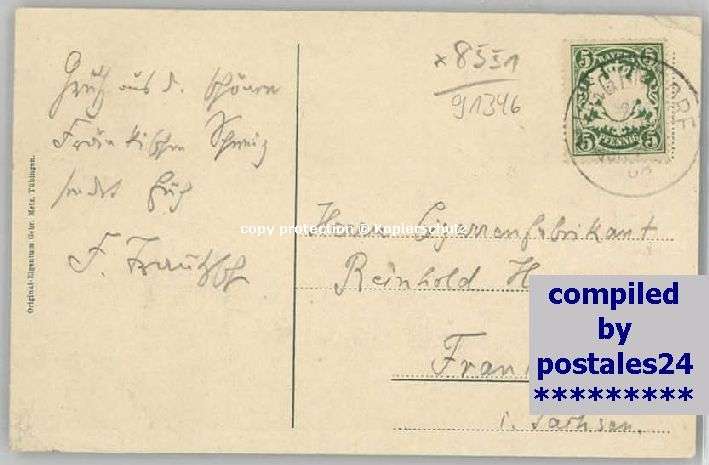 Gruß aus d. schönen
Fränkischen Schweiz
sendet Euch
F.
Original-Eigentum Gebr. Metz, Tübingen.
* 8551
91346
5 BAYERN 5
5 PFENNIG 5
copy protection © Kopierschutz
Herrn Cigarrenfabrikant
Reinhold H
Fran
i. Sachsen.
compiled
by
postales24
*********